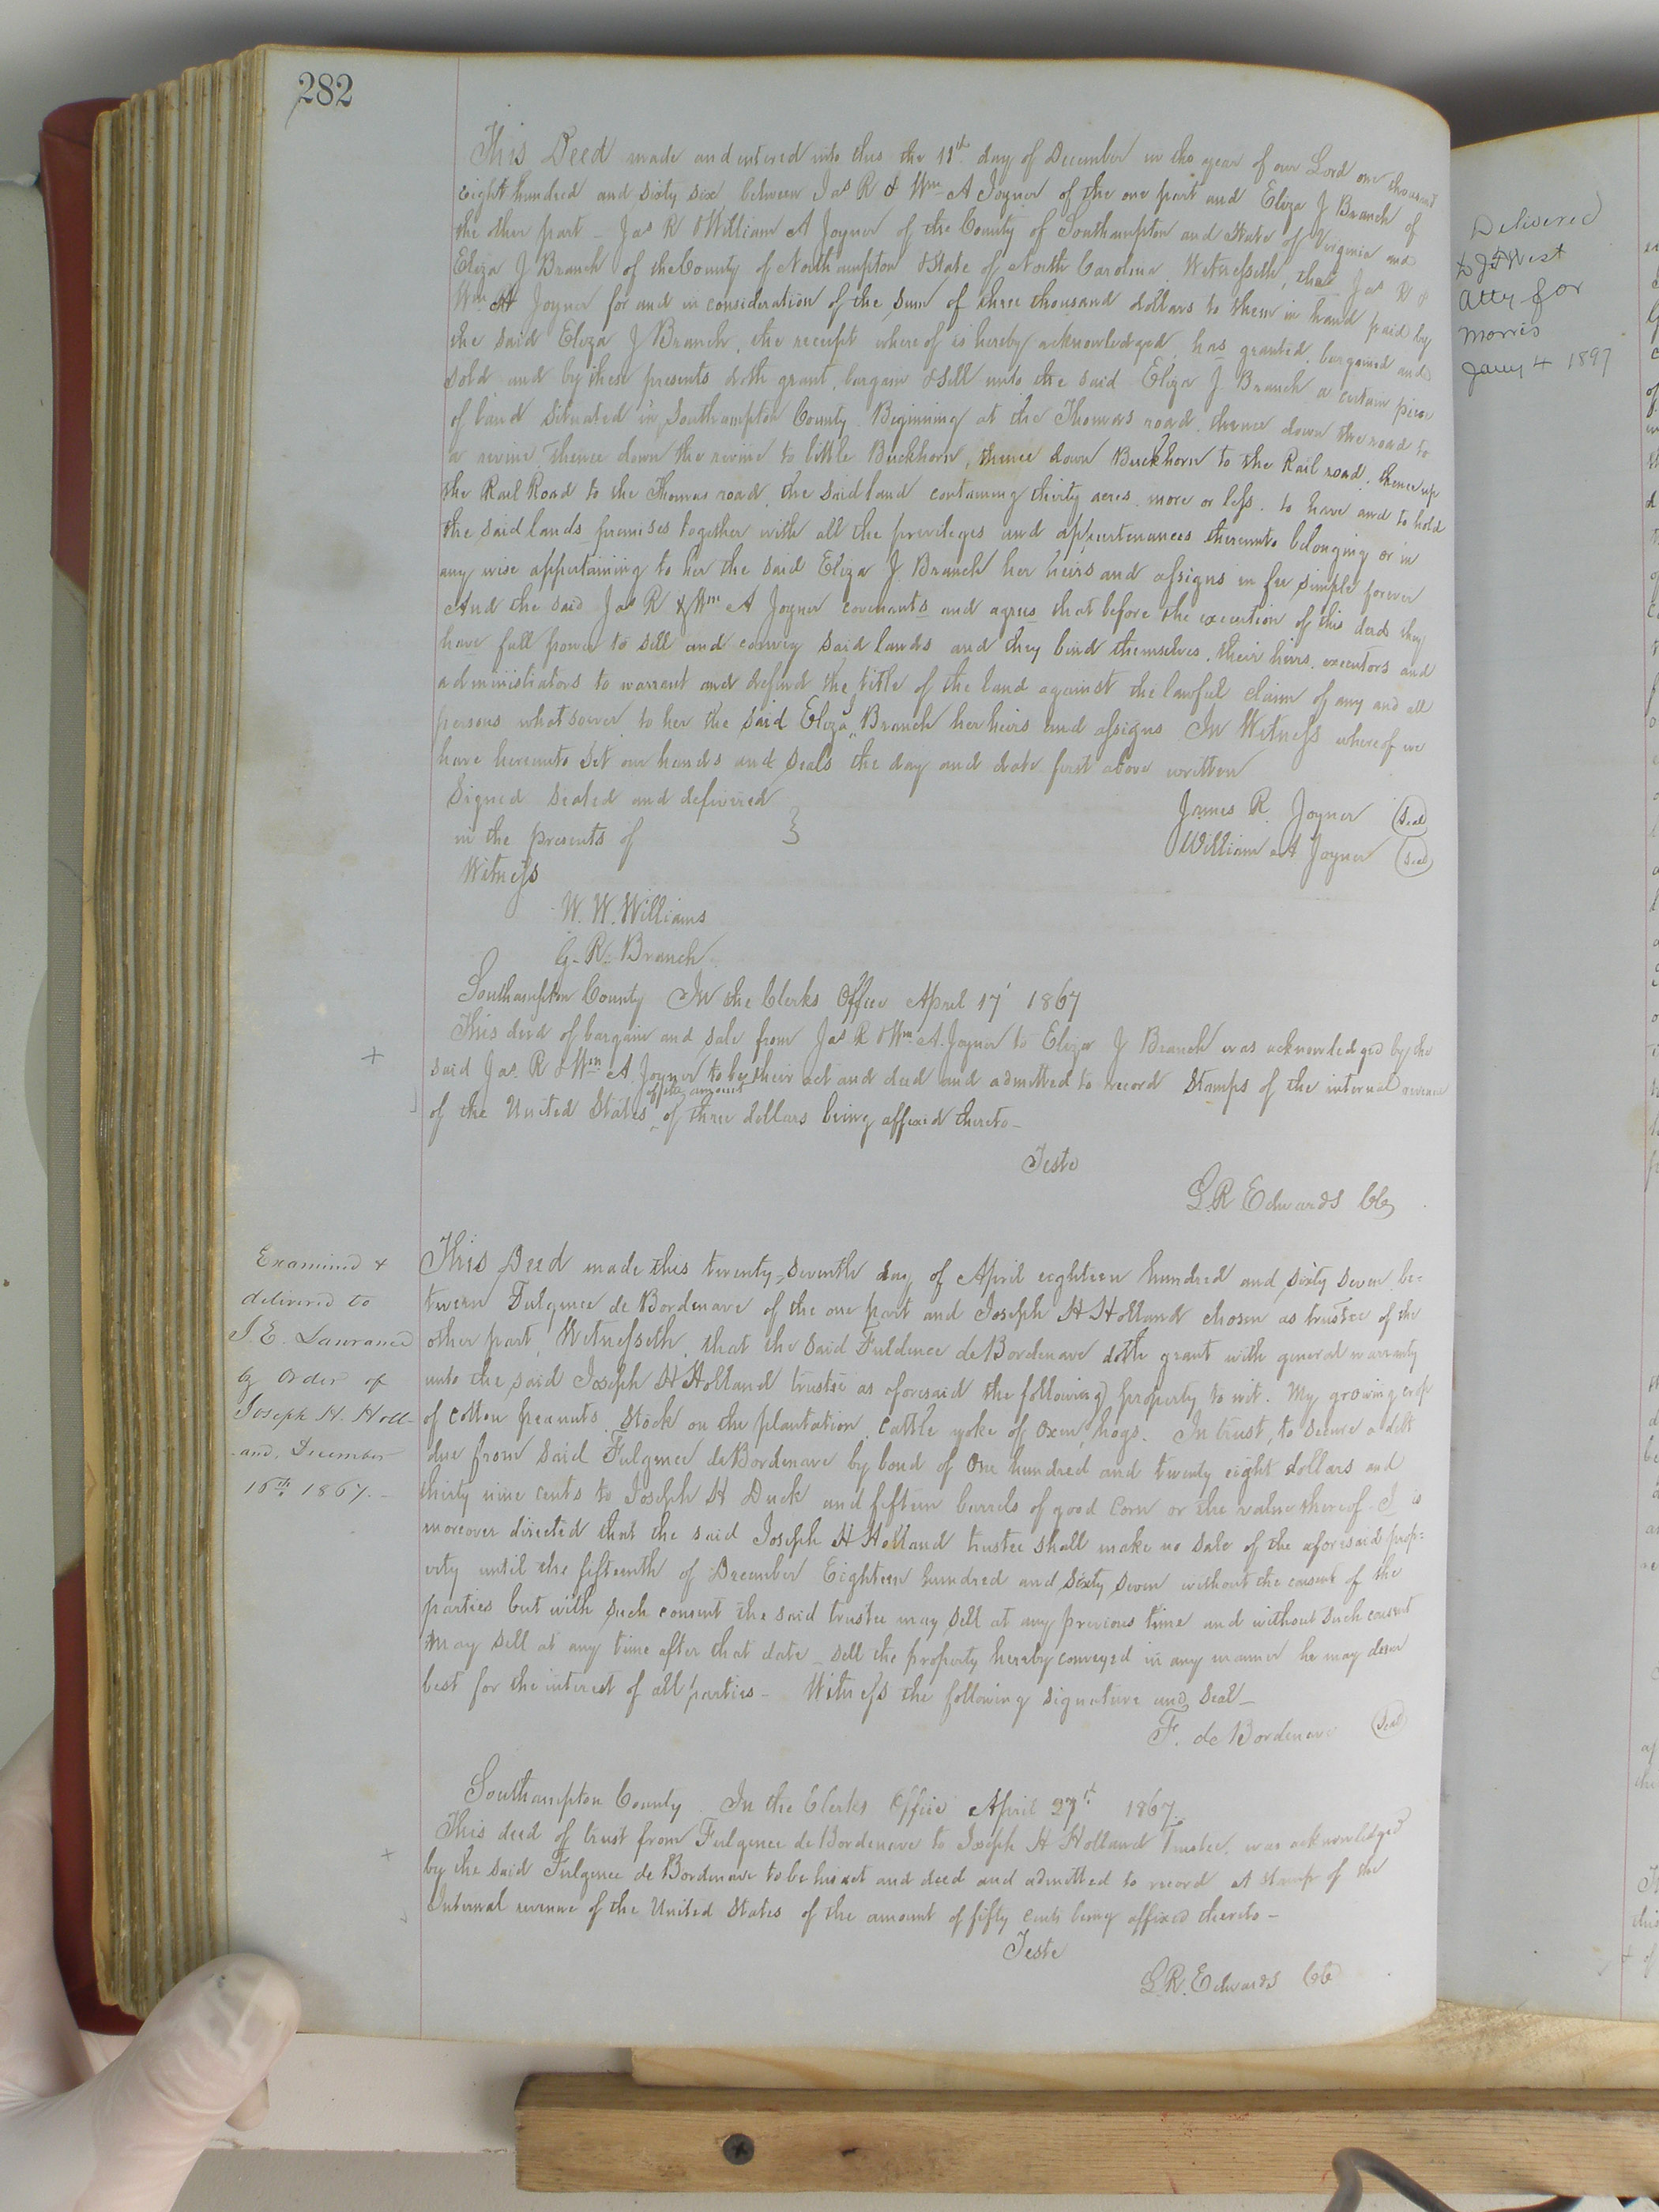 282
This Deed made and entered into this the 11th day of December in the year of our Lord one thousand
eight hundred and sixty six between Jas R & Wm A Joyner of the one part and Eliza J Branch of
the other part - Jas R & William A Joyner of the County of Southampton and State of Virginia and
Eliza J Branch of the County of Northampton & State of North Carolina Witnesseth, that Jas R &
Wm A Joyner for and in consideration of the sum of three thousand dollars to them in hand paid by
the said Eliza J Branch, the receipt whereof is hereby acknowledged, has granted, bargained and
sold and by these presents doth grant, bargain & sell unto the said Eliza J Branch a certain piece
of land situated in Southampton County Beginning at the Thomas road, thence down the road to
a revine thence down the revine to little Buckhorn, thence down Buckhorn to the Rail road, thence up
the Rail Road to the Thomas road, the said land containing thirty acres more or less. to have and to hold
the said lands premises together with all the previleges and appurtenances thereunto belonging or in
any wise appertaining to her the said Eliza J Branch her heirs and assigns in fee simple forever
And the said Jas R & Wm A Joyner covenants and agrees that before the execution of this deed they
have full power to sell and convey said lands and they bind themselves, their heirs, executors and
administrators to warrant and defend the title of the land against the lawful claim of any and all
persons whatsoever to her the said Eliza J Branch her heirs and assigns In Witness whereof we
have hereunto set our hands and seals the day and date first above written
Signed sealed and delivered
in the presents of
Witness
James R. Joyner Seal
William A Joyner Seal
W. W. Williams
G. R. Branch
Southampton County In the Clerks Office April 17' 1867
This deed of bargain and sale from Jas R & Wm A. Joyner to Eliza J Branch was acknowledged by the
said Jas. R & Wm A. Joyner to be their act and deed and admitted to record Stamps of the internal revenue
of the United States of the amount of three dollars being affixed thereto -
Teste
L.R Edwards CC
Examined &
delivered to
J. E. Lawrance
by Order of
Joseph H. Holl-
and, December
16th 1867. -
This Deed made this twenty-seventh day of April eighteen hundred and sixty seven be-
tween Fulgence de Bordenave of the one part and Joseph H Holland chosen as trustee of the
other part, Witnesseth, that the said Fuldence de Bordenave doth grant with general warranty
unto the said Joseph H Holland trustee as aforesaid the following property to wit. My growing crop
of cotton peanuts, stock on the plantation, cattle yoke of oxen, hogs. In trust, to secure a debt
due from said Fulgence de Bordenave by bond of One hundred and twenty eight dollars and
thirty nine cents to Joseph H Duck and fifteen barrels of good corn or the value thereof. I is
moreover directed that the said Joseph H Holland trustee shall make no sale of the aforesaid prop-
erty until the fifteenth of December Eighteen hundred and sixty seven without the consent of the
parties but with such consent the said trustee may sell at any previous time and without such consent
may sell at any time after that date - sell the property hereby conveyed in any manner he may deem
best for the interest of all parties - Witness the following signature and seal -
F. de Bordenave Seal
Southampton County In the Clerks Office April 27th 1867
This deed of trust from Fulgence de Bordenave to Joseph H Holland Trustee, was acknowledged
by the said Fulgence de Bordenave to be his act and deed and admitted to record A stamp of the
Internal revenue of the United States of the amount of fifty cents being affixed thereto -
Teste
L.R. Edwards CC
Delivered
to J F West
Atty for
Morris
Jany 4 1897